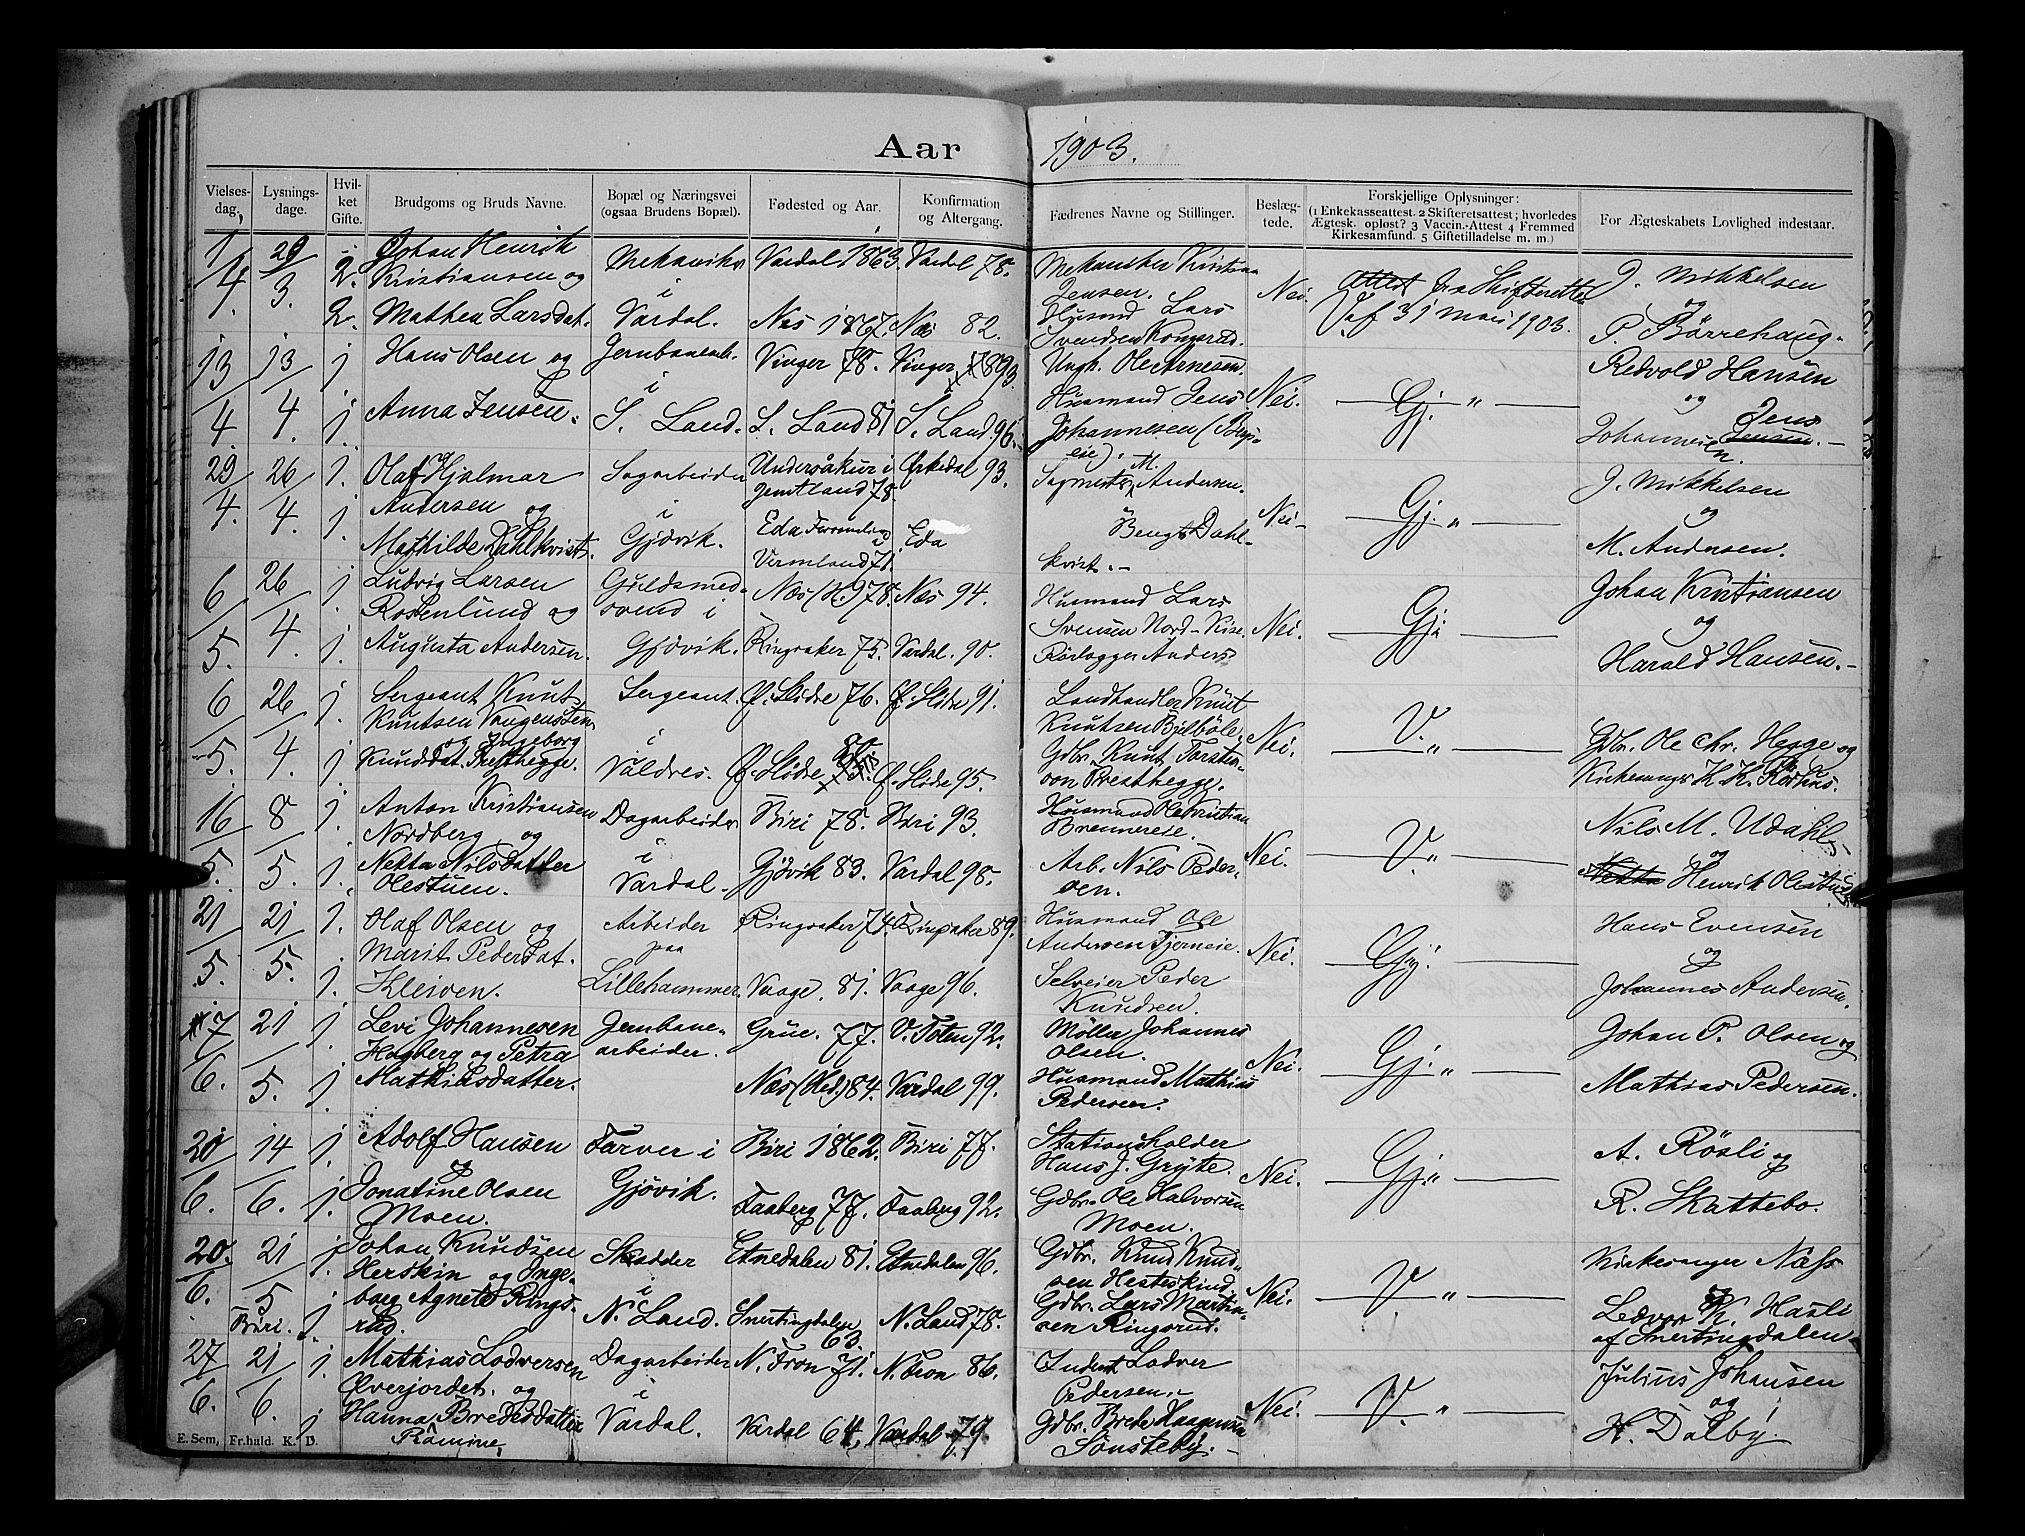 Aar 1903.
Vielses-dag. Lysnings-dage. Hvil-ket Gifte. Brudgoms og Bruds Navne. Bopæl og Næringsvei (ogsaa Brudens Bopæl). Fødested og Aar. Konfirmation og Altergang. Fædrenes Navne og Stillinger. Beslæg-tede. Forskjellige Oplysninger: (1 Enkekasseattest. 2 Skifteretsattest; hvorledes Ægtesk. opløst? 3 Vaccin.-Attest 4 Fremmed Kirkesamfund. 5 Giftetilladelse m. m.) For Ægteskabets Lovlighed indestaar.
1/4. 29/3. 2. Johan Henrik Kristiansen og Mekaniker i Vardal 1863. Vardal 78. Mekaniker Kristian Jensen. Nei. Attest fra Skifteretten J. Mikkelsen og
2. Mathea Larsdat. Vardal. Næs 1867. Næs 82. Husmd Lars Svendsen Kongsrud. V. af 31 mars 1903. P. Börrehaug.
13/4 13/4. 1 Hans Olsen og Jernbanearb. i Vinger 78. Vinger 93. Ungk. Ole Arnesen. Nei. Gj. " Redvold Hansen og
1. Anna Jensen. S. Land. S. Land 81 S. Land 96. Husmand Jens Johannesen (Bergseie). Johannes Jens Jensen.
29/4. 26/4. 1. Olaf Hjalmar Andersen og Sagarbeider i Undersåker i Jemtland 78. Orkedal 93. Sagmester M. Andersen. Nei. Gj. " J. Mikkelsen og
1. Mathilde Dahlkvist. Gjövik. Eda Vermland 71. Eda Bengt Dahlkvist. M. Andersen.
6/5. 26/4. 1 Ludvig Larsen Rosenlund og Guldsmedsvend i Næs (H.) 78. Næs 94. Husmand Lars Svensen Nord-Kise. Nei. Gj. Johan Kristiansen og
1. Augusta Andersen. Gjövik. Ringsaker 75. Vardal. 90. Rörlægger Anders Harald Hansen.
6/5. 26/4. 1. Sergeant Knut Knutsen Vangensten Sergeant. i Ø. Slidre 76. Ø. Slidre 91. Landhandler Knut Knutsen Nei. V. " Gdbr. Ole Chr. Hegge og
1 og Ingeborg Knudsdat. Presthegge. Valdres. Ø. Slidre 80 Ø. Slidre 95. Gdbr. Knut Torstensen Presthegge. Kirkesanger K. K.
16/5. 8/5. 1. Anton Kristiansen Nordberg og Dagarbeider i Biri 78. Biri 93. Husmand Ole Kristian Brennereie. Nei. V. " Nils M. Udahl og
1. Nekta Nilsdatter Olestuen. Vardal. Gjövik 83. Vardal 98. Arb. Nils Pedersen. Nekta Henrik Olestuen
21/5. 21/5. 1. Olaf Olsen og Arbeider paa Ringsaker 74. Ringsaker 89. Husmand Ole Andersen Tjerneie. Nei. Gj. Hans Evensen og
1. Marit Pedersdat. Kleiven. Lillehammer. Vaage. 81. Vaage 96. Selveier Peder Knudsen. Johannes Andersen.
7/6. 21/5. 1 Levi Johannesen Hagberg og Petra Jernbanearbeider. Grue. 77. V. Toten 92. Möller Johannes Olsen. Nei. Gj. " Johan P. Olsen og
1 Mathiasdatter. Næs (Hed.) 84. Vardal 99. Husmand Mathias Pedersen. Mathias Pedersen.
20/6. 14/6. 1. Adolf Hansen og Farver i Biri 1862. Biri 77. Stationsholder Hans J. Gryte. Nei. Gj. " A. Rösli og
1. Jonatine Olsen Moen. Gjövik. Faaberg 77. Faaberg 92. Gdbr. Ole Halvorsen Moen. R. Skattebo.
20./6. 21/5 Biri. 1. Johan Knudsen Herskin og Inge- Skrædder i Etnedalen 81. Etnedalen 96. Gdbr. Knud Knudsen Hesteskind. Nei. V. " Kirkesanger Næss og
1. borg Agnete Ringsrud. N. Land. Snertingdalen 63. N. Land 78. Gdbr. Lars Martinsen Ringsrud. Ledvor K. Hasli af Snertingdalen
27/6. 21/6. 1. Mathias Lodversen Øverjordet. og Dagarbeider i N. Fron 71. N. Fron 86. Inderst Lodver Pedersen. Nei. V. " Julius Johansen og
1 Hanna Bredesdatter Vardal. Vardal 64. Vardal 79. Gdbr. Brede Haagensen Sönsteby. H. Dalby.
E. Sem, Fr.hald. K. D.